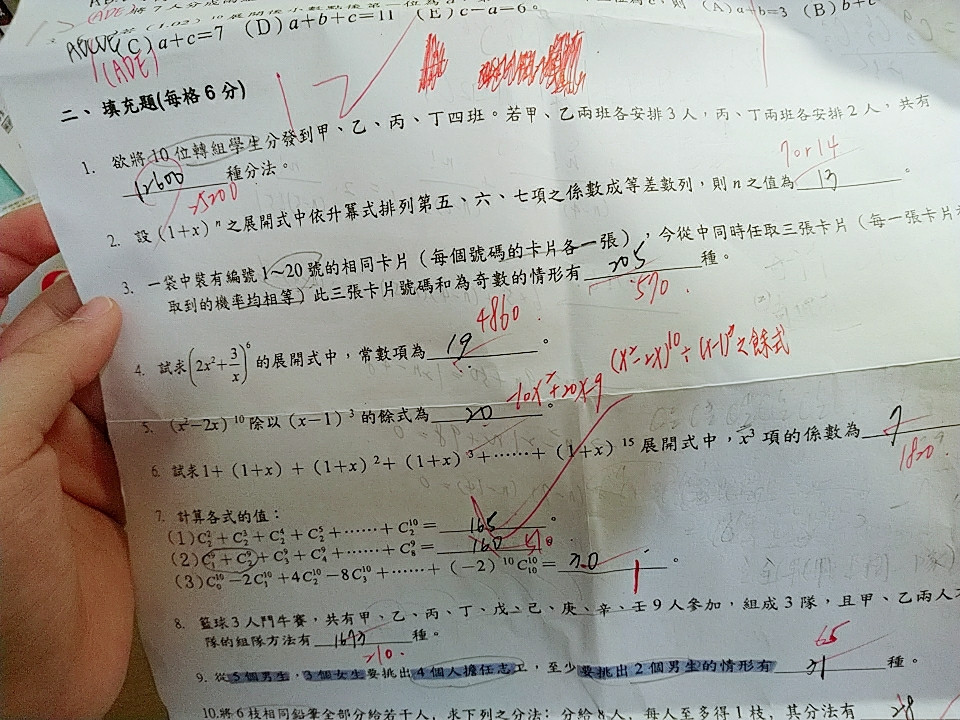 (ADE)
(A) a+b=3 (B) b+c
ABCDE (C) a+c=7 (D) a+b+c=11 (E) c-a=6。
(ADE)
二、填充題(每格6分)
1. 欲將10位轉組學生分發到甲、乙、丙、丁四班。若甲、乙兩班各安排3人,丙、丁兩班各安排2人,共有
12600 種分法。
25200
7 or 14
2. 設 (1+x)ⁿ 之展開式中依升冪式排列第五、六、七項之係數成等差數列,則 n 之值為 13 。
3. 一袋中裝有編號1~20號的相同卡片(每個號碼的卡片各一張),今從中同時任取三張卡片(每一張卡片
取到的機率均相等)此三張卡片號碼和為奇數的情形有 205 種。
570.
4860.
4. 試求(2x²+3/x)⁶ 的展開式中,常數項為 19 。
(x²-2x)¹⁰÷(x-1)³之餘式
-10x²+20x-9
5. (x²-2x)¹⁰除以 (x-1)³的餘式為 20 。
6. 試求1+(1+x)+(1+x)²+(1+x)³+……+(1+x)¹⁵展開式中,x³項的係數為 7
1820.
7. 計算各式的值:
(1)C²₂+C³₂+C⁴₂+C⁵₂+……+C¹⁰₂= 165 。
(2)C⁹₁+C⁹₂+C⁹₃+C⁹₄+……+C⁹₈= 160 510
(3)C¹⁰₀-2C¹⁰₁+4C¹⁰₂-8C¹⁰₃+……+(-2)¹⁰C¹⁰₁₀= 30 。
1
8. 籃球3人鬥牛賽,共有甲、乙、丙、丁、戊、己、庚、辛、壬9人參加,組成3隊,且甲、乙兩人
隊的組隊方法有 種。
210.
65
9. 從5個男生,3個女生要挑出4個人擔任志工,至少要挑出2個男生的情形有 31 種。
10.將6枝相同鉛筆全部分給若干人,求下列之分法:分給8人,每人至多得1枝,其分法有 28